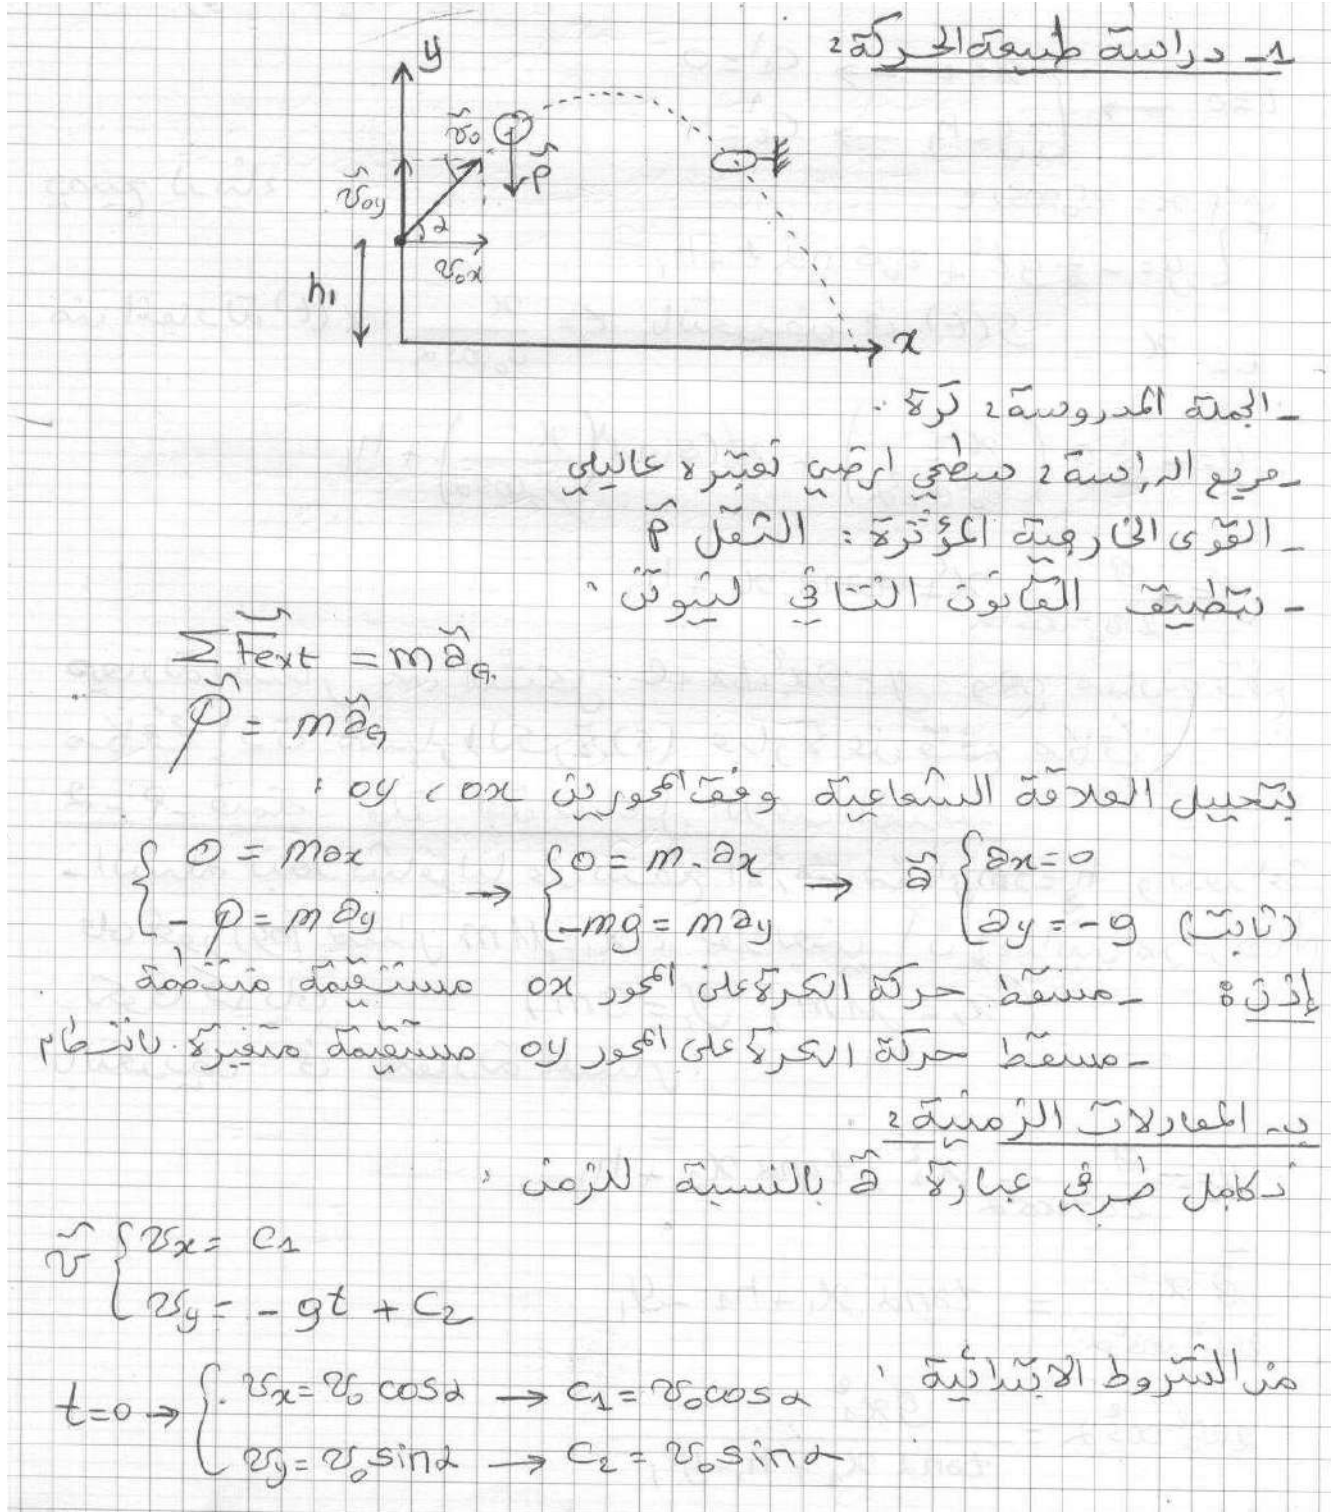 1- دراسة طبيعة الحركة :
y
v⃗₀
P⃗
v⃗₀y
α
v⃗₀x
h₁
x
- الجملة المدروسة : كرة .
- مرجع الدراسة : سطحي أرضي نعتبره غاليلي
- القوى الخارجية المؤثرة : الثقل P⃗
- بتطبيق القانون الثاني لنيوتن :
ΣF⃗ext = m a⃗G.
P⃗ = m a⃗G
بتحليل العلاقة الشعاعية وفق المحورين ox ، oy :
{ 0 = max → { 0 = m.ax → a⃗ { ax = 0
- P = m ay -mg = m ay ay = -g (ثابت)
إذن : - مسقط حركة الكرة على المحور ox مستقيمة منتظمة .
- مسقط حركة الكرة على المحور oy مستقيمة متغيرة بانتظام
ب- المعادلات الزمنية :
نكامل طرفي عبارة a⃗ بالنسبة للزمن :
v⃗ { vx = C1
vy = - gt + C2
من الشروط الابتدائية :
t=0 → { vx = v₀ cosα → C1 = v₀ cosα
vy = v₀ sinα → C2 = v₀ sinα